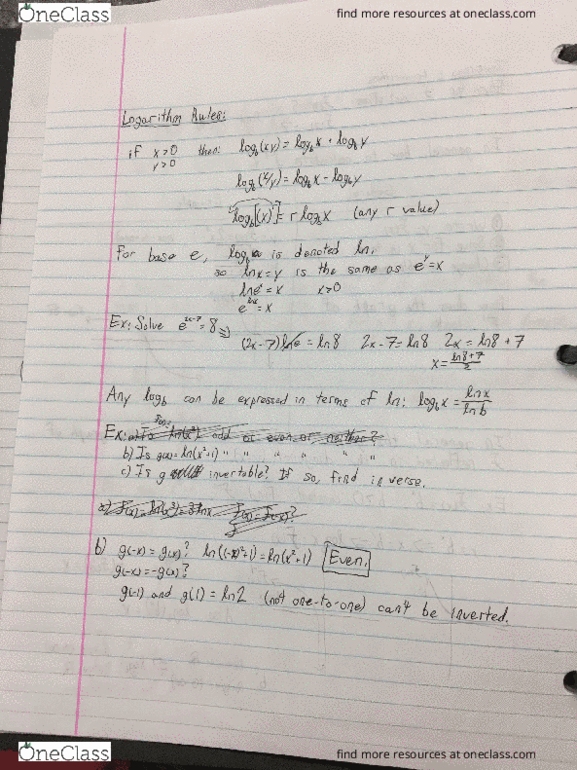 OneClass
find more resources at oneclass.com
Logarithm Rules:
if x>0 then: log_b(xy) = log_b x + log_b y
y>0
log_b(x/y) = log_b x - log_b y
log_b[(x)^r] = r log_b x (any r value)
For base e, log_e is denoted ln,
so lnx=y is the same as e^y=x
lne^x = x x>0
e^lnx = x
Ex: Solve e^2x-7 = 8
(2x-7)lne = ln8 2x-7=ln8 2x = ln8 + 7
x = (ln8+7)/2
Any log_b can be expressed in terms of ln: log_b x = lnx/lnb
Ex: a) Is ln(x³) odd or even or neither?
b) Is g(x)=ln(x²+1) " " " " "
c) Is g invertable? If so, find inverse.
a) f(x)=ln(x³)=3lnx f(x)=f(-x)?
b) g(-x)=g(x)? ln((-x)²+1)=ln(x²+1) Even.
g(-x)=-g(x)?
g(-1) and g(1) = ln2 (not one-to-one) can't be inverted.
OneClass
find more resources at oneclass.com